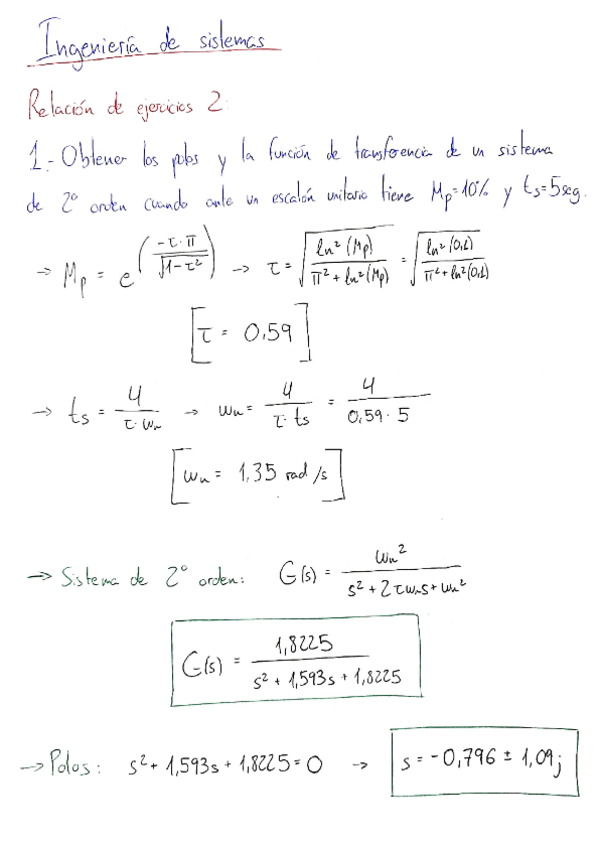 Ingeniería de sistemas
Relación de ejercicios 2:
1.- Obtener los polos y la función de transferencia de un sistema
de 2º orden cuando ante un escalón unitario tiene Mp=10% y ts=5seg.
→ Mp = e^(-τ·π / √(1-τ²)) → τ = √(ln²(Mp) / (π² + ln²(Mp))) = √(ln²(0,1) / (π² + ln²(0,1)))
[τ = 0,59]
→ ts = 4 / (τ·wn) → wn = 4 / (τ·ts) = 4 / (0,59·5)
[wn = 1,35 rad/s]
→ Sistema de 2º orden: G(s) = wn² / (s² + 2τwns + wn²)
G(s) = 1,8225 / (s² + 1,593s + 1,8225)
→ Polos: s² + 1,593s + 1,8225 = 0 → s = -0,796 ± 1,09j